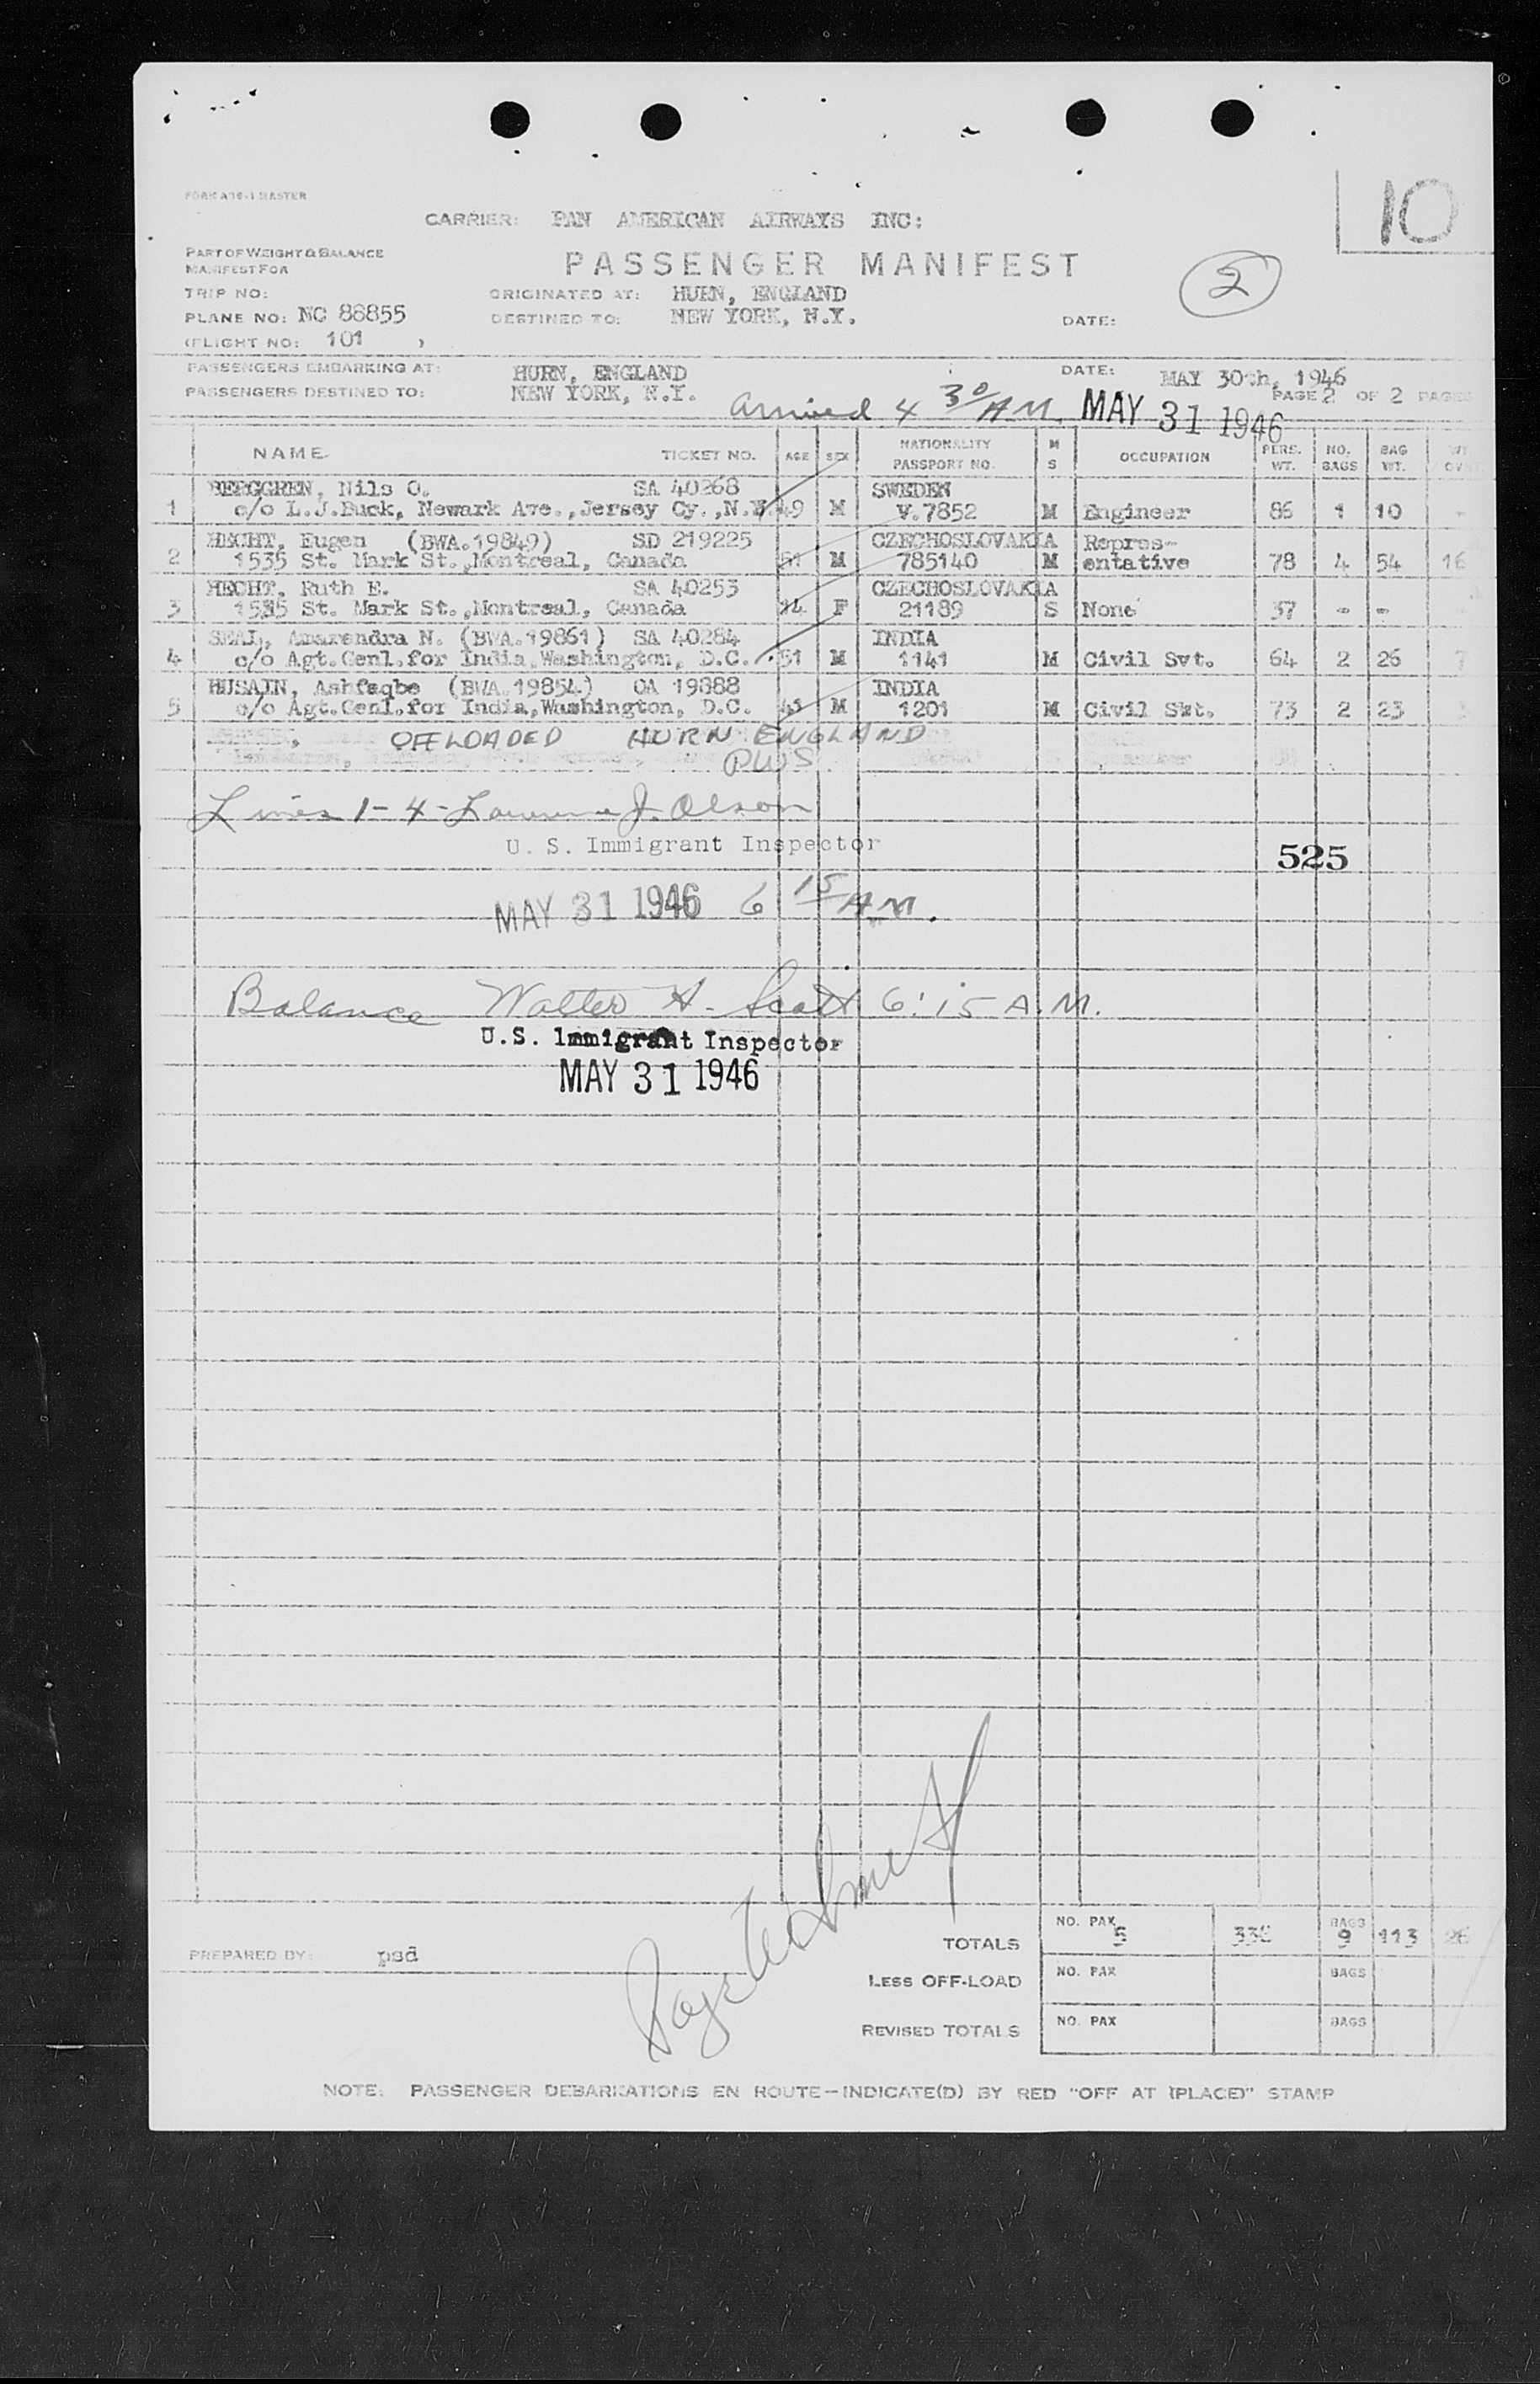 CARRIER: PAN AMERICAN AIRWAYS INC:
10
PART OF WEIGHT & BALANCE
MANIFEST FOR
PASSENGER MANIFEST
2
TRIP NO:
ORIGINATED AT: HURN, ENGLAND
PLANE NO: NC 88855
DESTINED TO: NEW YORK, N.Y.
DATE:
(FLIGHT NO: 101 )
PASSENGERS EMBARKING AT: HURN, ENGLAND
DATE: MAY 30th, 1946
PASSENGERS DESTINED TO: NEW YORK, N.Y.
PAGE 2 OF 2 PAGES
Arrived 4 30 AM. MAY 31 1946
NAME TICKET NO. AGE SEX NATIONALITY PASSPORT NO. M S OCCUPATION PERS. WT. NO. BAGS BAG WT.
1 BERGGREN, Nils O. SA 40268 SWEDEN
c/o L.J.Buck, Newark Ave.,Jersey Cy.,N.Y. 49 M V.7852 M Engineer 86 1 10
2 HECHT, Eugen (BWA.19849) SD 219225 CZECHOSLOVAKIA Repres-
1535 St. Mark St.,Montreal, Canada 51 M 785140 M entative 78 4 54 16
3 HECHT, Ruth E. SA 40253 CZECHOSLOVAKIA
1535 St. Mark St.,Montreal, Canada 24 F 21189 S None 37 - -
4 SEAL, Amarendra N. (BWA.19861) SA 40284 INDIA
c/o Agt.Genl.for India,Washington, D.C. 51 M 1141 M Civil Svt. 64 2 26
5 HUSAIN, Ashfaqbe (BWA.19854) OA 19888 INDIA
c/o Agt.Genl.for India,Washington, D.C. 45 M 1201 M Civil Svt. 73 2 23
OFFLOADED HURN ENGLAND
PWS
Lines 1-4- Lawrence J. Olson
U. S. Immigrant Inspector
525
MAY 31 1946 6 15 AM.
Balance Walter H. Scott 6:15 A.M.
U.S. Immigrant Inspector
MAY 31 1946
TOTALS NO. PAX 5 338 BAGS 9 113 26
PREPARED BY: psd
LESS OFF-LOAD NO. PAX BAGS
REVISED TOTALS NO. PAX BAGS
NOTE: PASSENGER DEBARKATIONS EN ROUTE-INDICATE(D) BY RED "OFF AT (PLACE)" STAMP